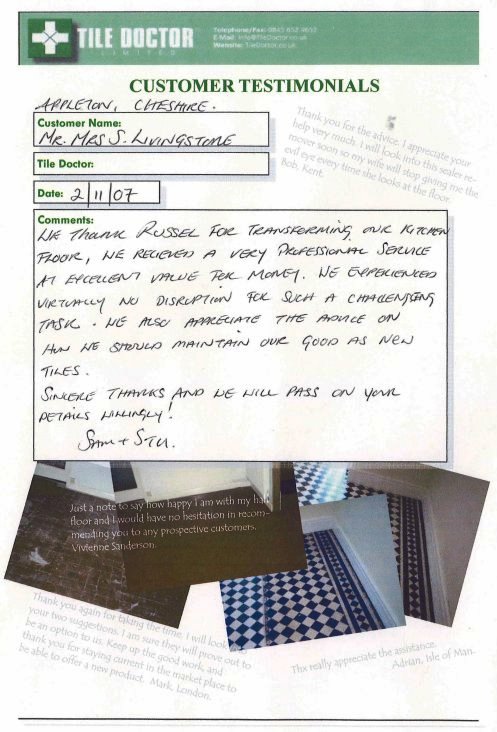 TILE DOCTOR
LIMITED
Telephone/Fax: 0845 652 9652
E-Mail: info@TileDoctor.co.uk
Website: TileDoctor.co.uk
CUSTOMER TESTIMONIALS
APPLETON, CHESHIRE.
Customer Name:
MR. MRS S. LIVINGSTONE
Tile Doctor:
Date: 2/11/07
Thank you for the advice. I appreciate your
help very much. I will look into this sealer re-
mover soon so my wife will stop giving me the
evil eye every time she looks at the floor.
Bob, Kent.
Comments:
WE THANK RUSSEL FOR TRANSFORMING OUR KITCHEN
FLOOR, WE RECIEVED A VERY PROFESSIONAL SERVICE
AT EXCELLENT VALUE FOR MONEY. WE EXPERIENCED
VIRTUALLY NO DISRUPTION FOR SUCH A CHALLENGING
TASK. WE ALSO APPRECIATE THE ADVICE ON
HOW WE SHOULD MAINTAIN OUR GOOD AS NEW
TILES.
SINCERE THANKS AND WE WILL PASS ON YOUR
DETAILS WILLINGLY!
SAM + STU.
Just a note to say how happy I am with my hall
floor and I would have no hesitation in recom-
mending you to any prospective customers.
Vivienne Sanderson.
Thank you again for taking the time. I will look
your two suggestions. I am sure they will prove out to
be an option to us. Keep up the good work, and
thank you for staying current in the market place to
be able to offer a new product. Mark, London.
Thx really appreciate the assistance.
Adrian, Isle of Man.